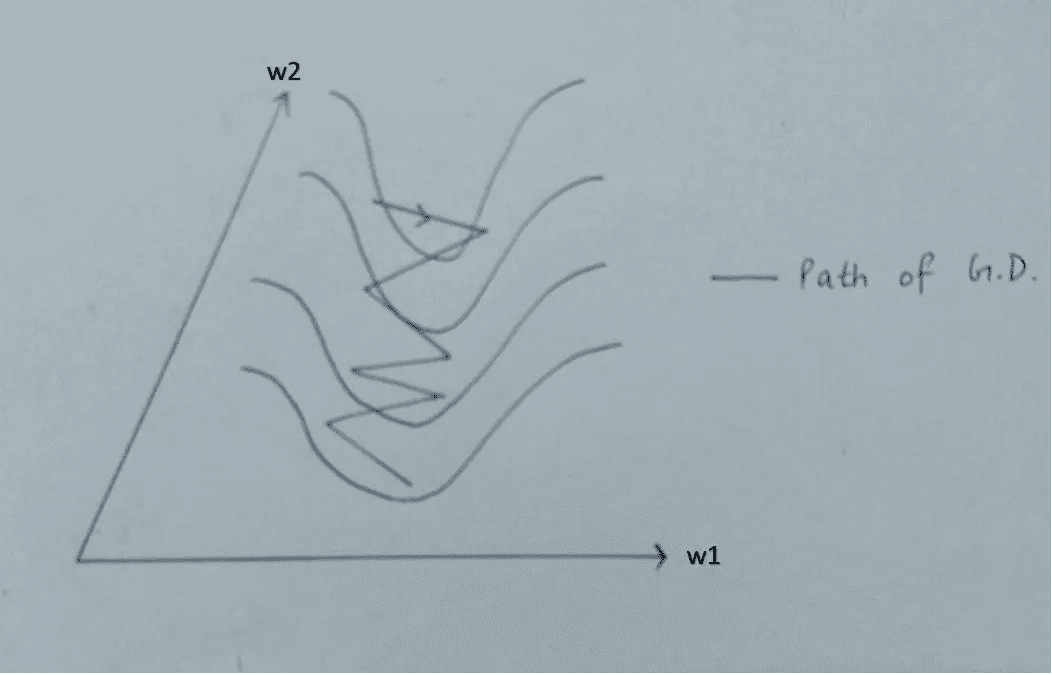 w2
Path of G.D.
w1